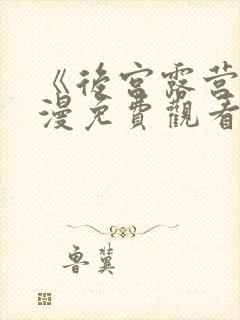 《後宮露營
漫免費觀看
魯冀